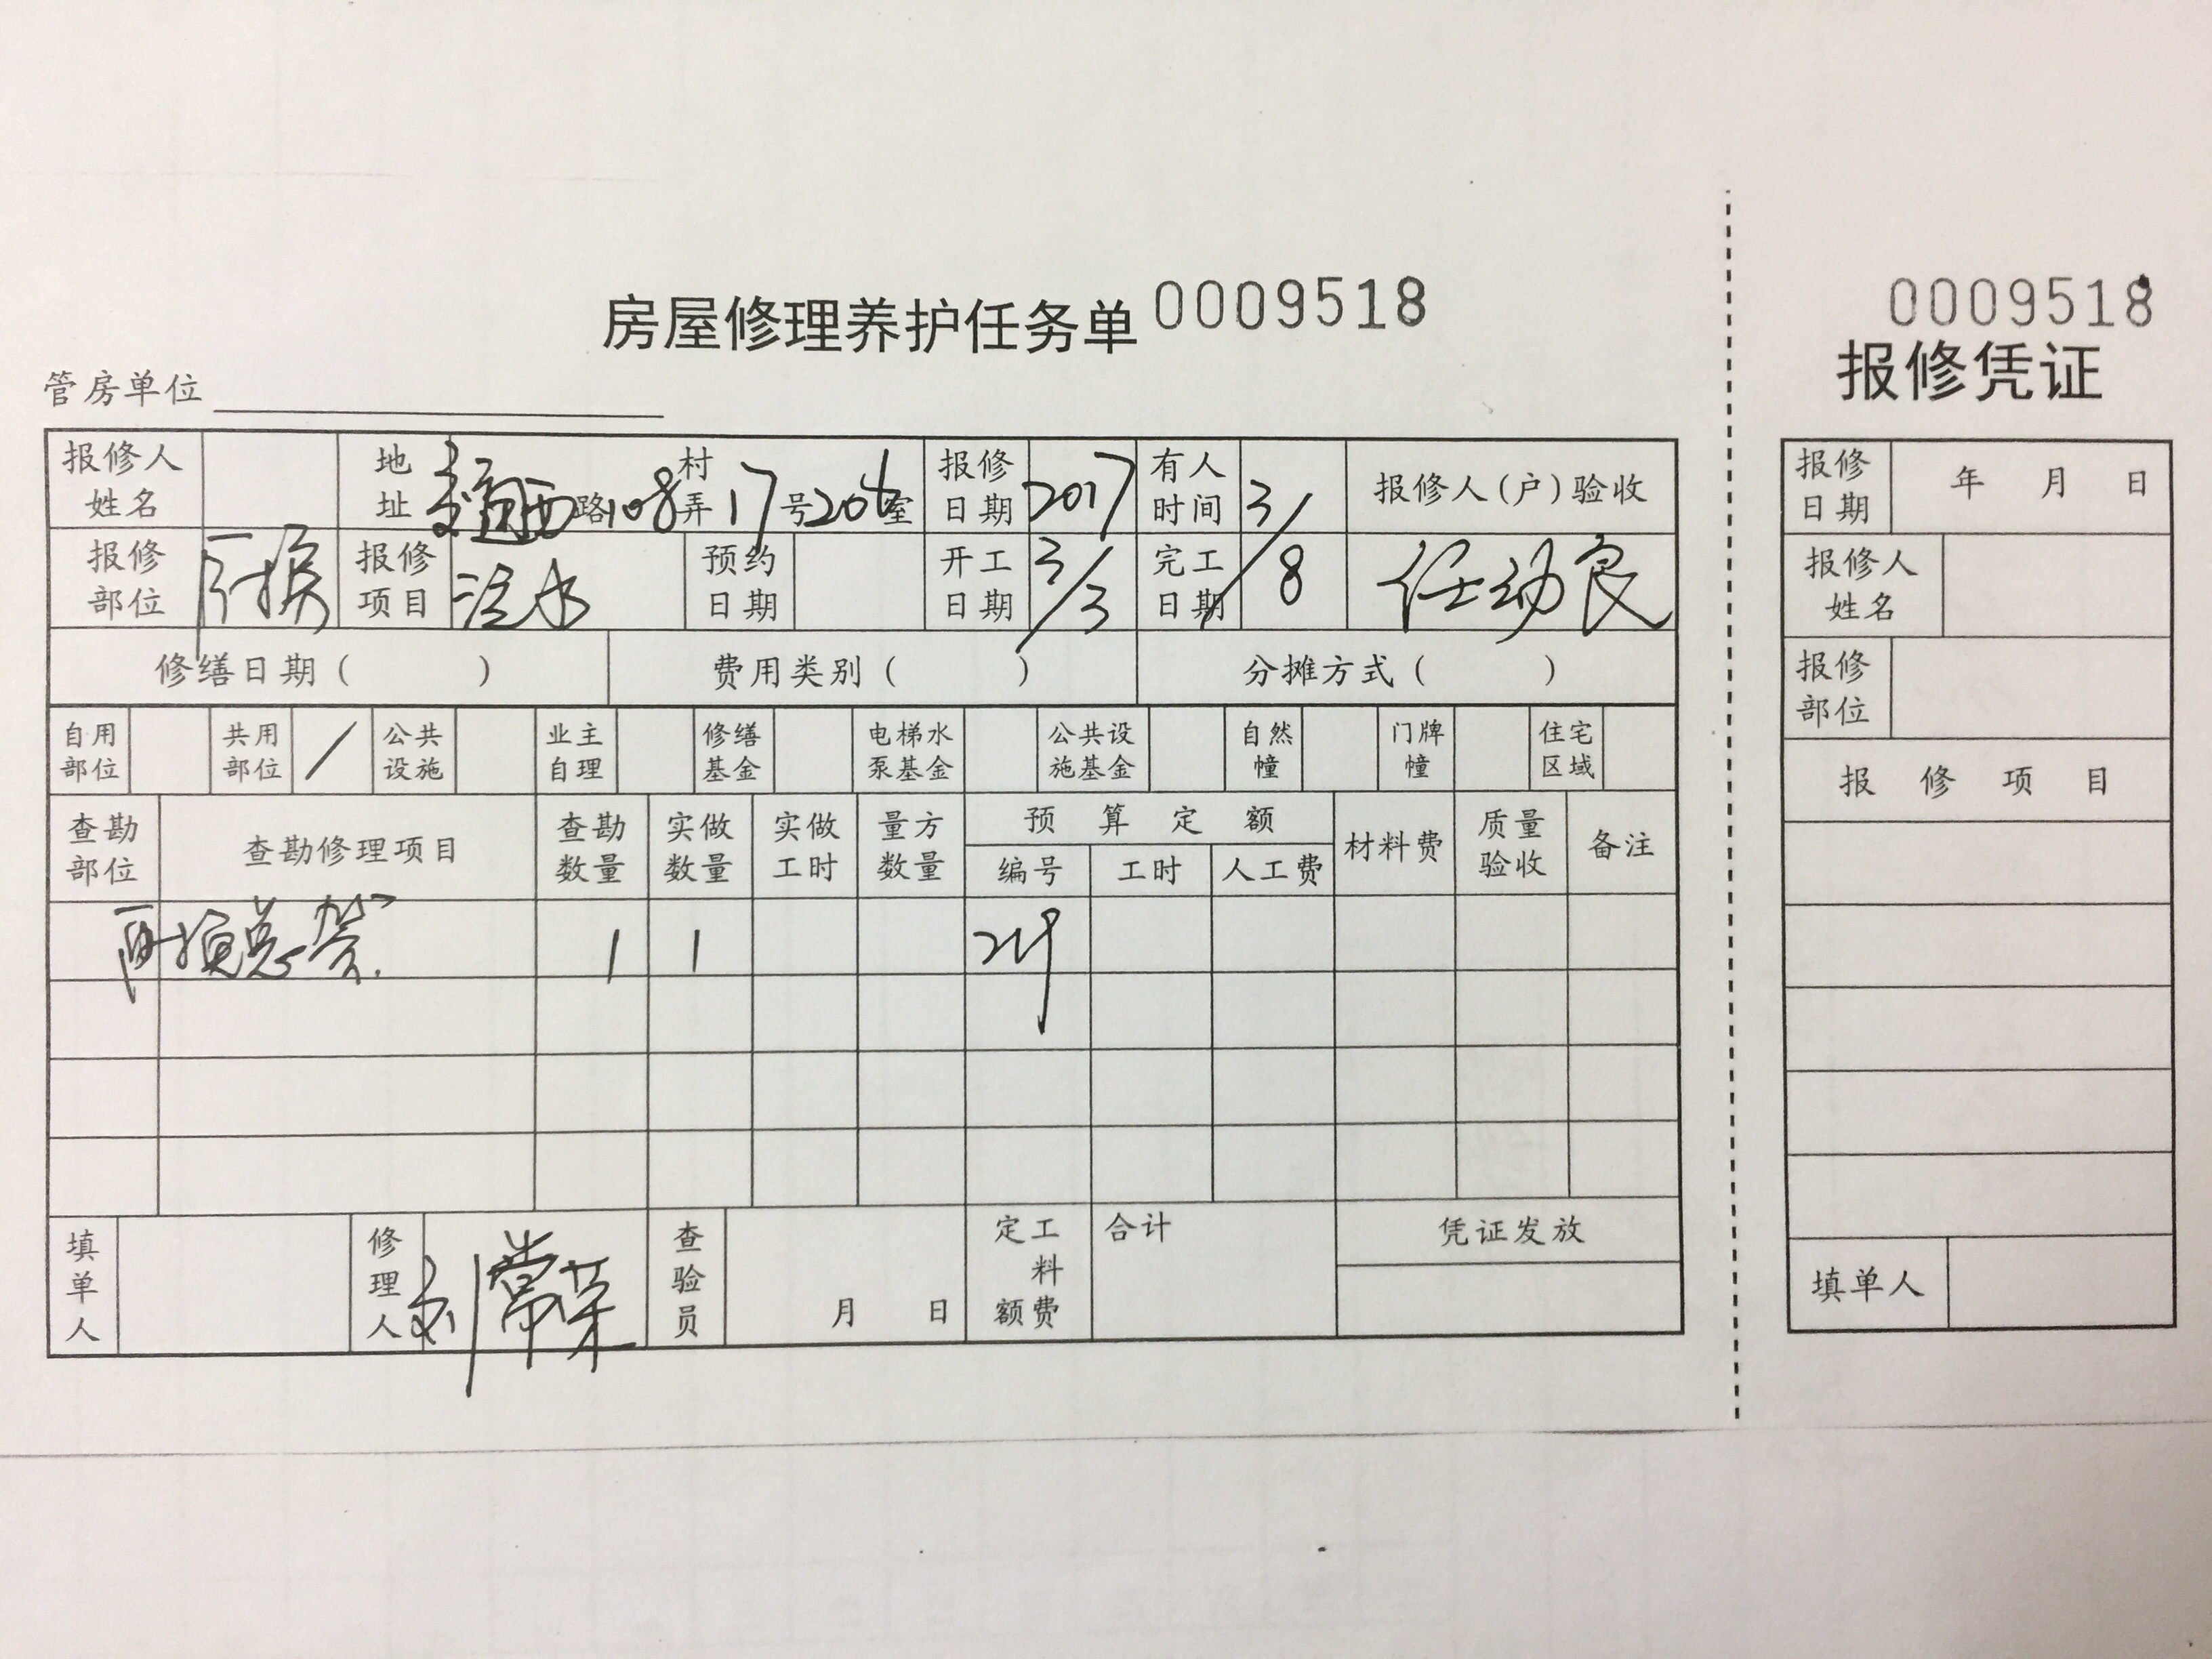 房屋修理养护任务单 0009518
管房单位
报修人姓名 地址 路108村弄17号206室 报修日期 2017 有人时间 3/8 报修人(户)验收
报修部位 报修项目 注水 预约日期 开工日期 3/3 完工日期 任幼良
修缮日期( ) 费用类别( ) 分摊方式( )
自用部位 共用部位 / 公共设施 业主自理 修缮基金 电梯水泵基金 公共设施基金 自然幢 门牌幢 住宅区域
查勘部位 查勘修理项目 查勘数量 实做数量 实做工时 量方数量 预算定额 材料费 质量验收 备注
编号 工时 人工费
1 1
填单人 修理人 刘常荣 查验员 月 日 定额工料费 合计 凭证发放
0009518
报修凭证
报修日期 年 月 日
报修人姓名
报修部位
报修项目
填单人